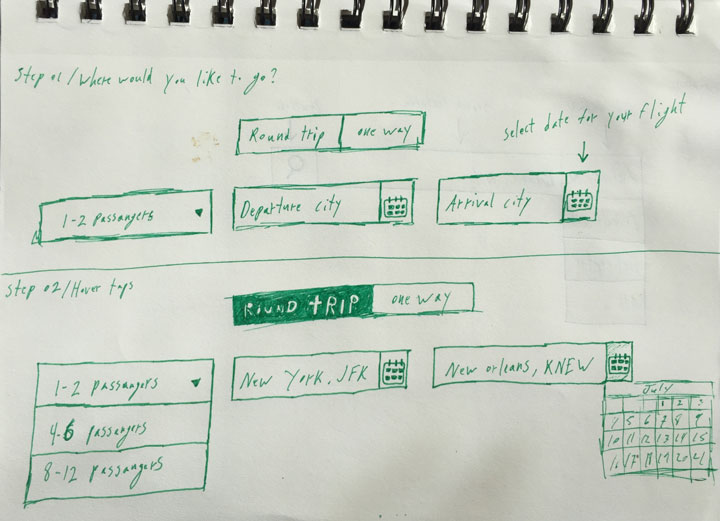 Step 01/Where would you like to go?
select date for your flight
Round trip
one way
1-2 passangers
Departure city
Arrival city
Step 02/Hover taps
ROUND tRIP
one way
1-2 passangers
4-6 passangers
8-12 passangers
New York, JFK
New orleans, KNEW
July
1 2 3
5 6 7 8 9
10 11 12 13 14 15
17 18 19 20 21